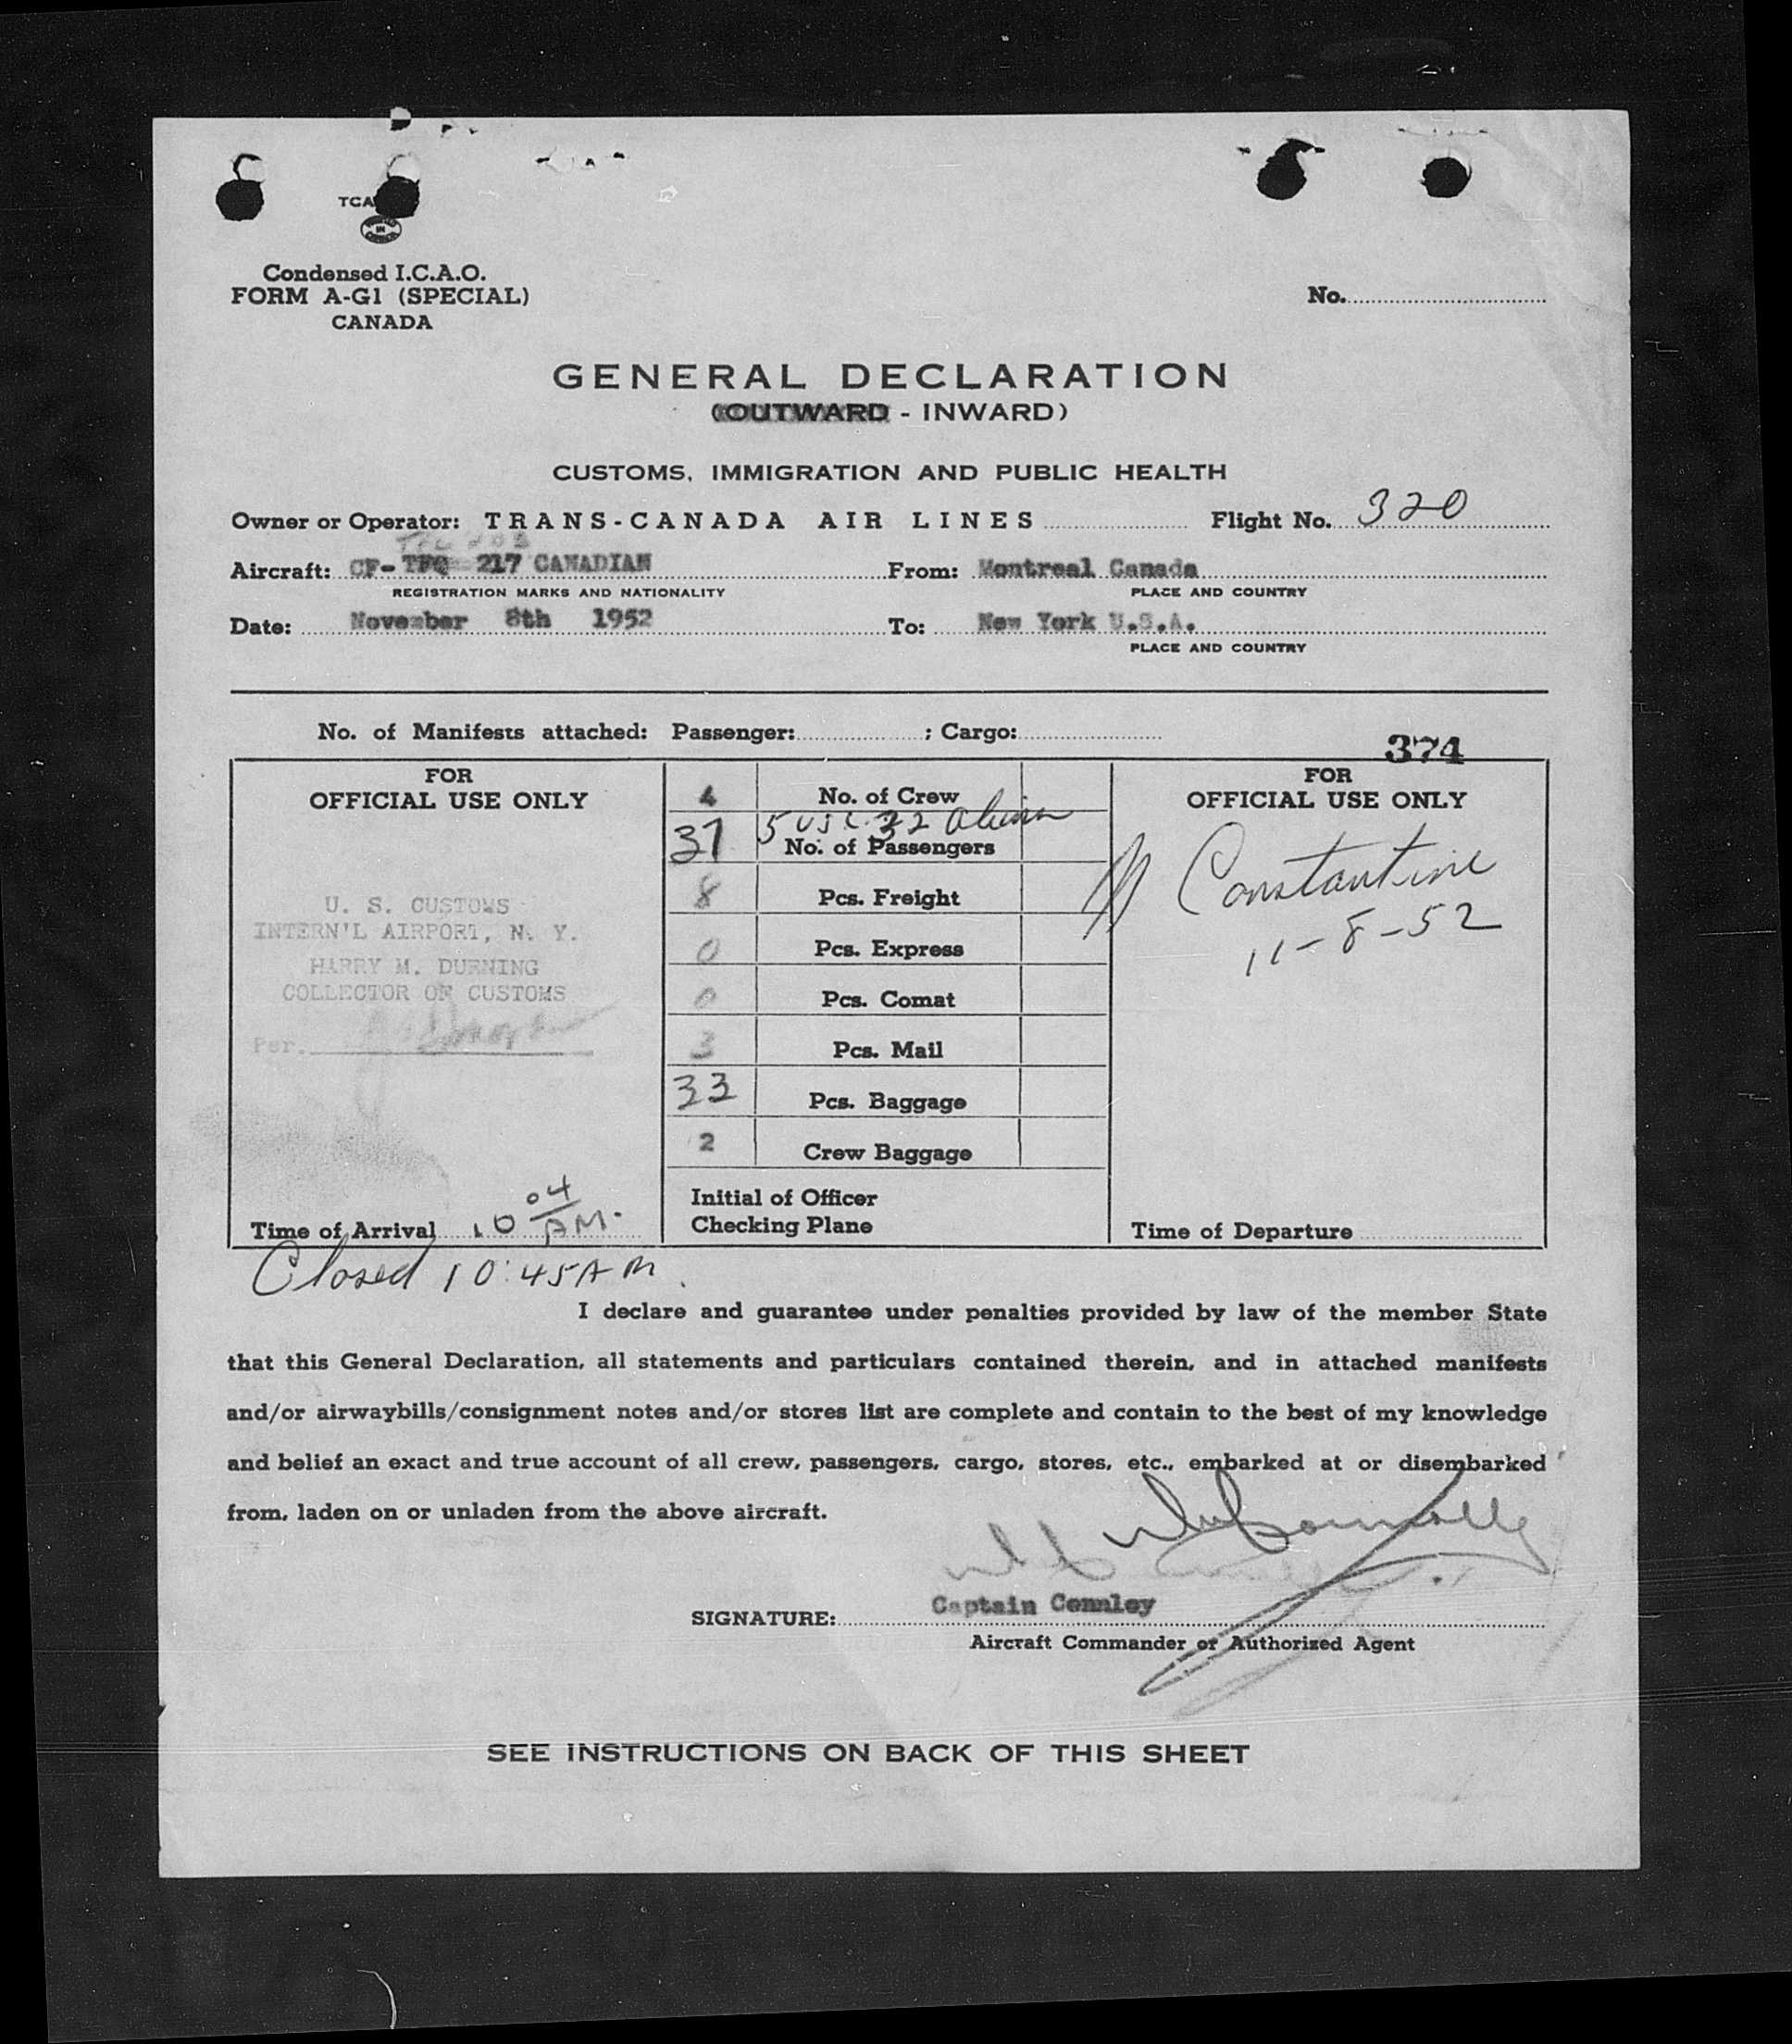 TCA
IN
Condensed I.C.A.O.
FORM A-G1 (SPECIAL)
CANADA
No.
GENERAL DECLARATION
(OUTWARD - INWARD)
CUSTOMS, IMMIGRATION AND PUBLIC HEALTH
Owner or Operator: TRANS-CANADA AIR LINES Flight No. 320
Aircraft: CF-TFQ 217 CANADIAN From: Montreal Canada
REGISTRATION MARKS AND NATIONALITY PLACE AND COUNTRY
Date: November 8th 1952 To: New York U.S.A.
PLACE AND COUNTRY
No. of Manifests attached: Passenger: ; Cargo:
374
FOR
OFFICIAL USE ONLY
U. S. CUSTOMS
INTERN'L AIRPORT, N. Y.
HARRY M. DURNING
COLLECTOR OF CUSTOMS
Per.
Time of Arrival 10 04 AM.
4 No. of Crew
5 USC 32 Aliens
37 No. of Passengers
8 Pcs. Freight
0 Pcs. Express
0 Pcs. Comat
3 Pcs. Mail
33 Pcs. Baggage
2 Crew Baggage
Initial of Officer
Checking Plane
FOR
OFFICIAL USE ONLY
Constantine
11-8-52
Time of Departure
Closed 10:45 AM.
I declare and guarantee under penalties provided by law of the member State
that this General Declaration, all statements and particulars contained therein, and in attached manifests
and/or airwaybills/consignment notes and/or stores list are complete and contain to the best of my knowledge
and belief an exact and true account of all crew, passengers, cargo, stores, etc., embarked at or disembarked
from, laden on or unladen from the above aircraft.
SIGNATURE: Captain Connley
Aircraft Commander or Authorized Agent
SEE INSTRUCTIONS ON BACK OF THIS SHEET